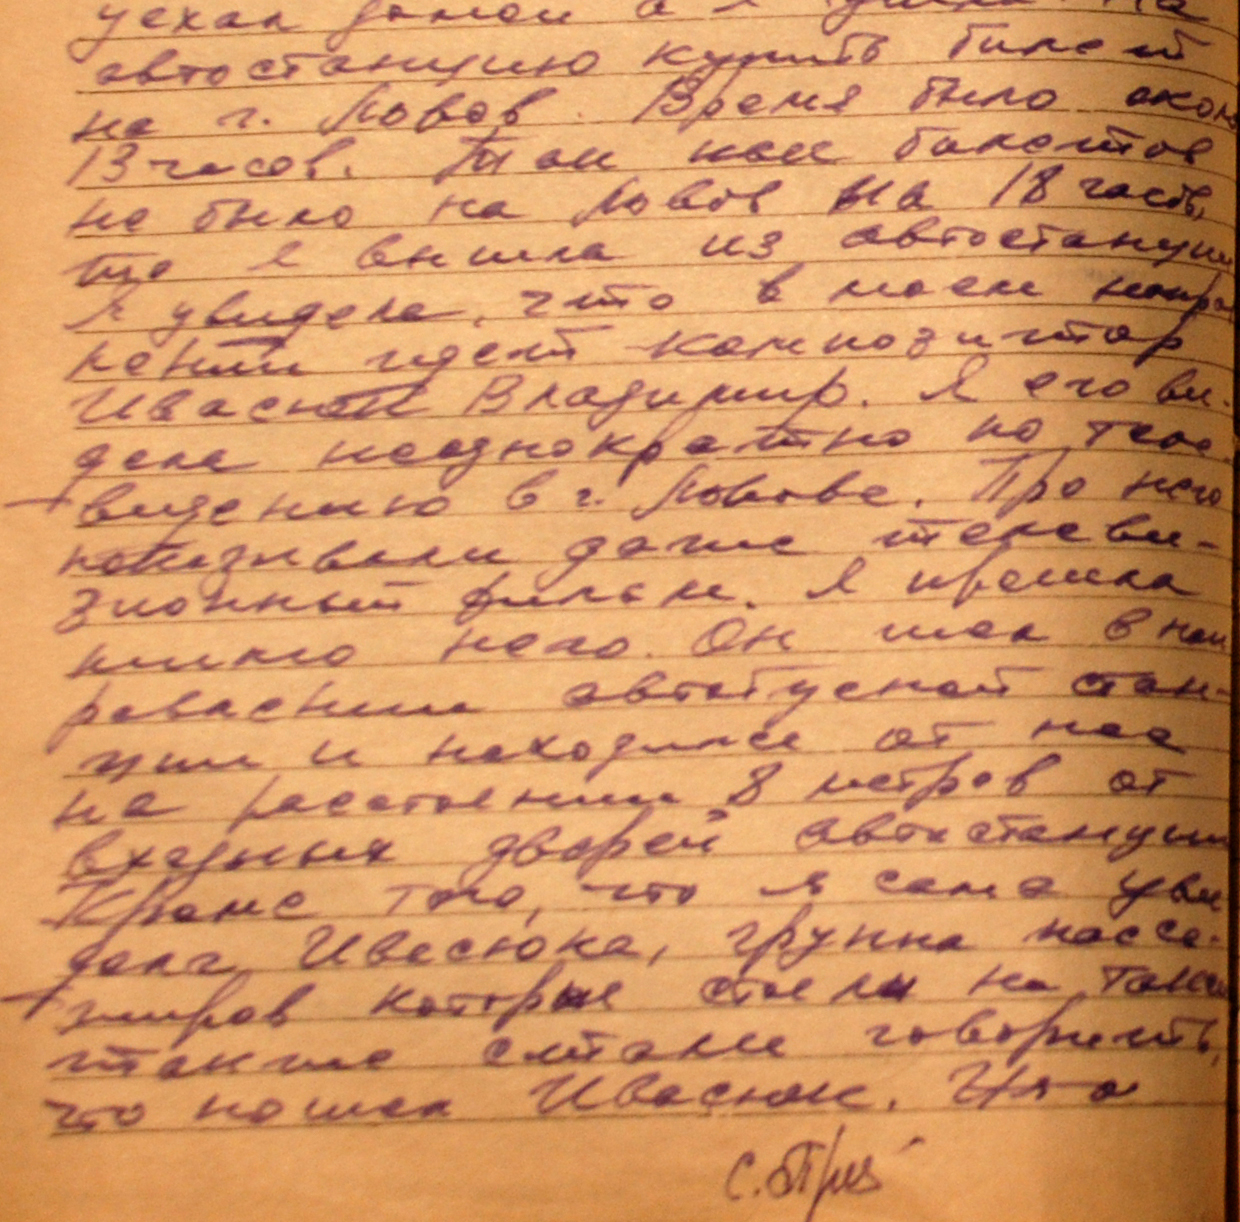 уехал домой а я пошла на
автостанцию купить билет
на г. Львов. Время было около
13 часов. Так как билетов
не было на Львов на 18 часов,
то я вышла из автостанции
Я увидела, что в моем направ
лении идет композитор
Ивасюк Владимир. Я его ви-
дела неоднократно по теле-
видению в г. Львове. Про него
показывали даже телеви-
зионный фильм. Я прошла
мимо него. Он шел в нап
равлении автобусной стан-
ции и находился от нее
на расстоянии 8 метров от
входных дверей автостанции
Кроме того, что я сама уви
дела Ивасюка, группа пасса-
жиров которые стояли на такси
также стали говорить,
что пошел Ивасюк.